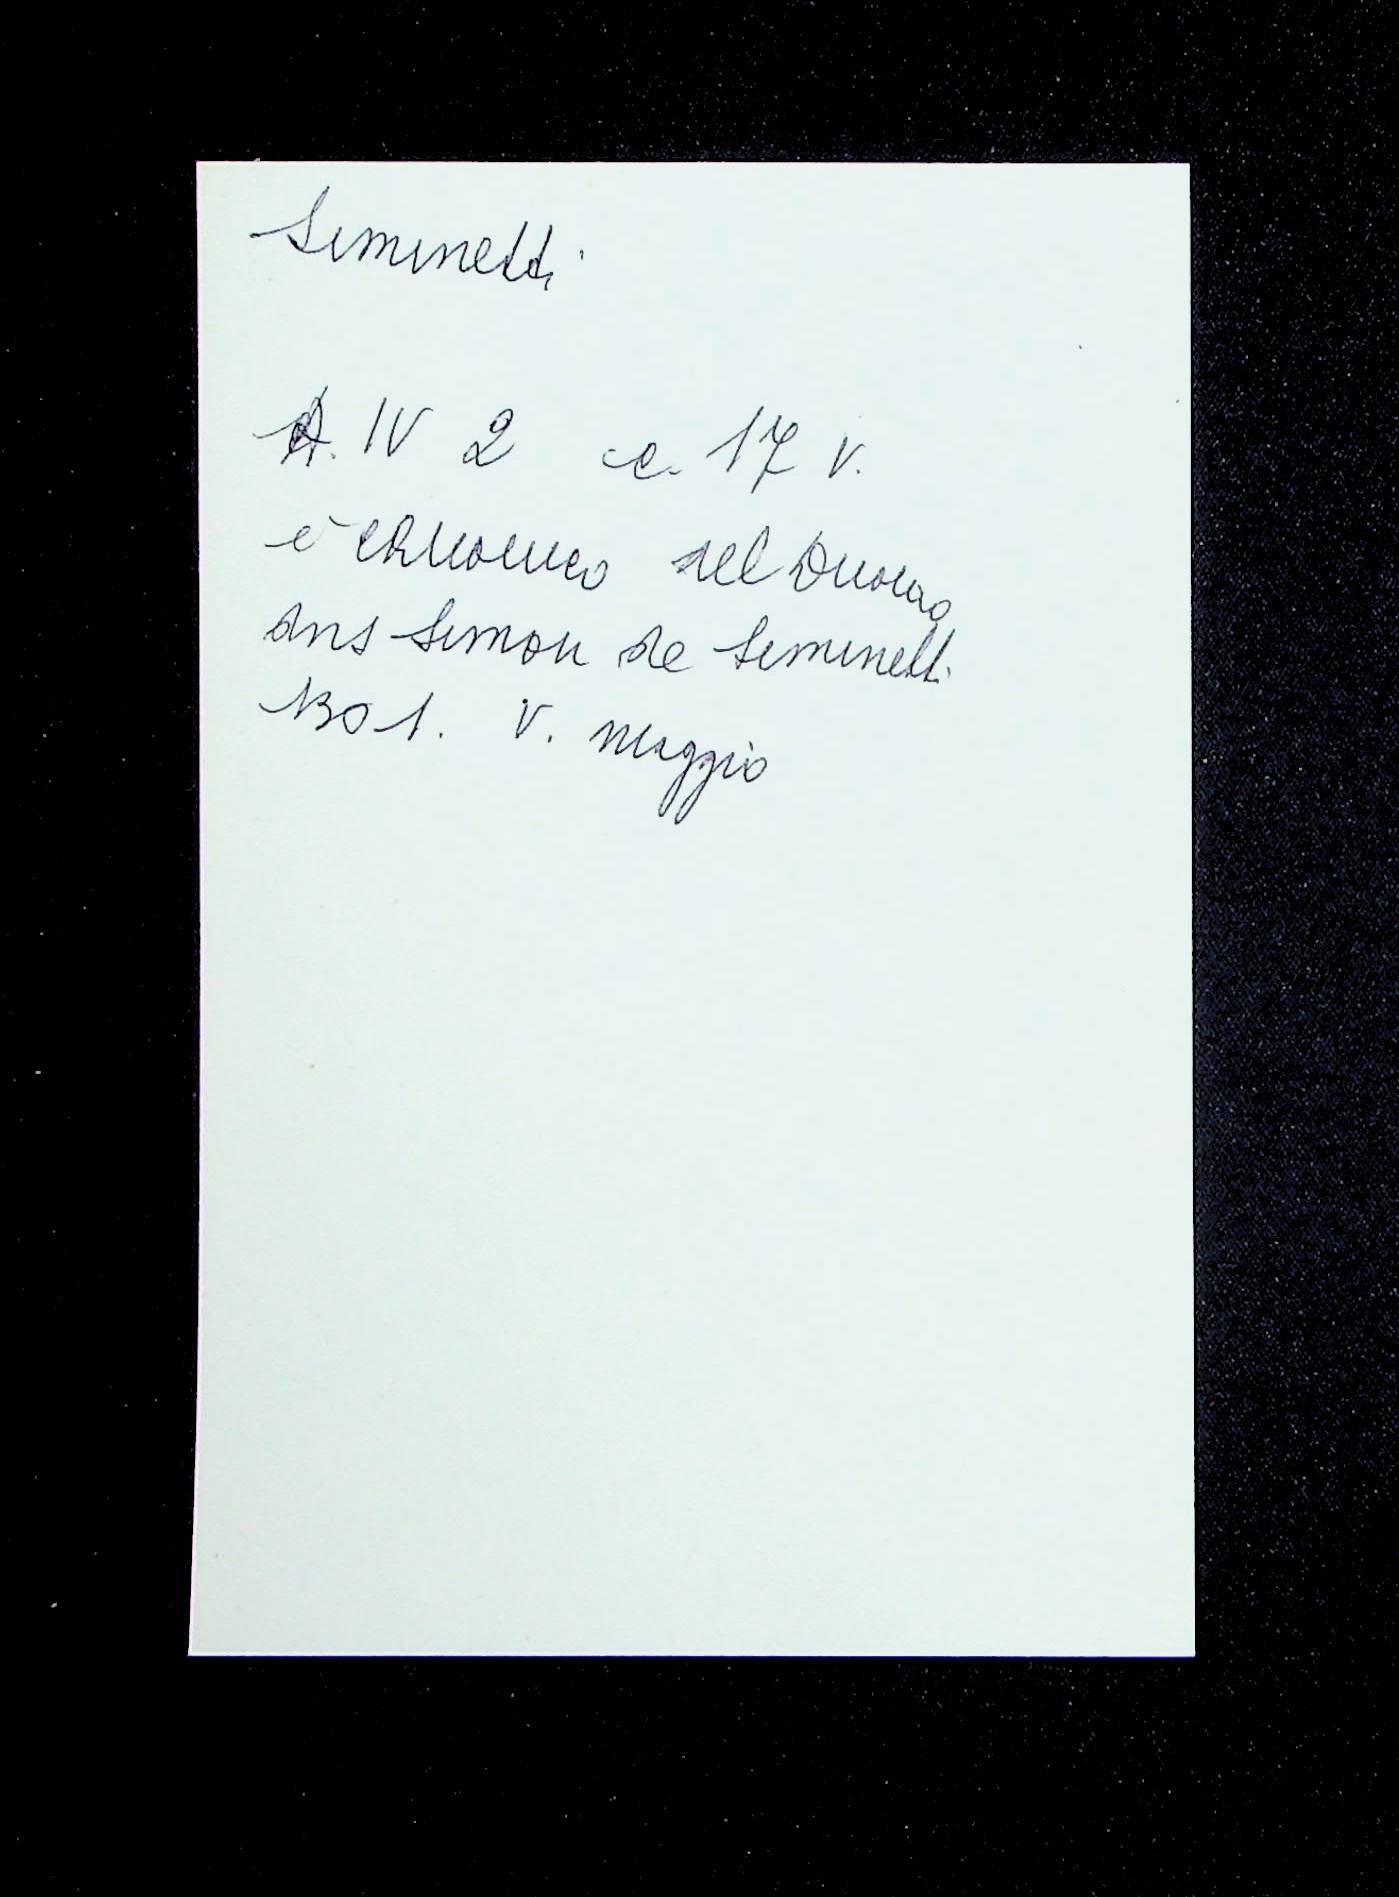 Siminetti
A. IV 2 c. 17 v.
è canonico del Duomo
dns Simon de Siminetti
1301. V. maggio